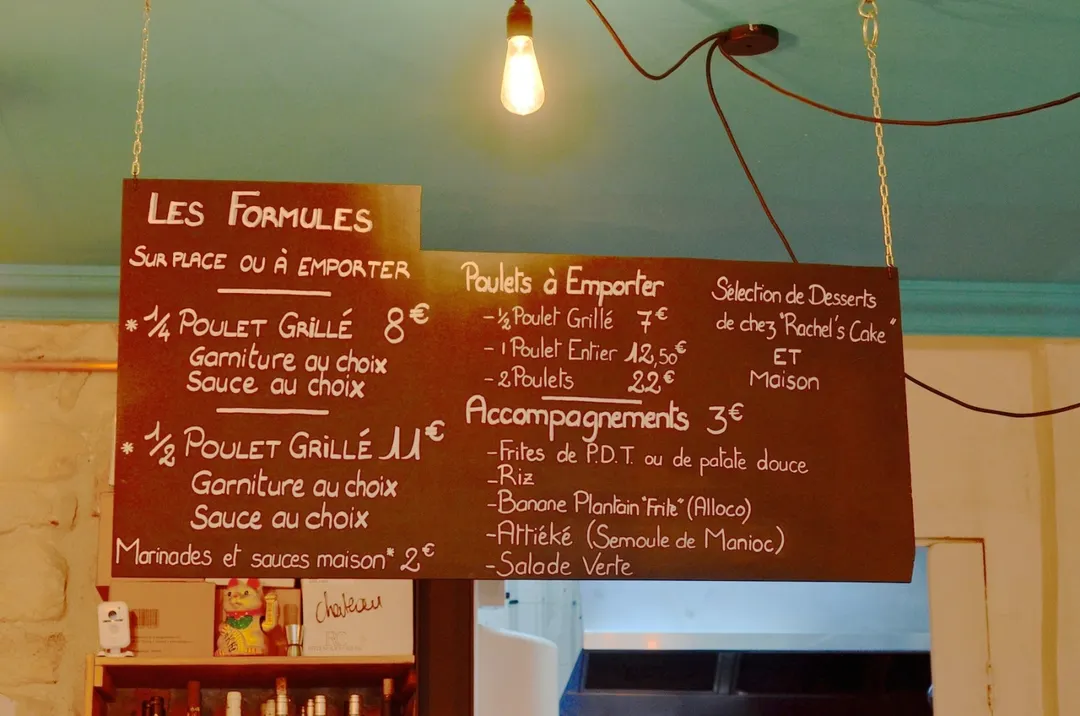 LES FORMULES
SUR PLACE OU À EMPORTER
* 1/4 POULET GRILLÉ 8€
Garniture au choix
Sauce au choix
* 1/2 POULET GRILLÉ 11€
Garniture au choix
Sauce au choix
Marinades et sauces maison* 2€
Poulets à Emporter
- 1/2 Poulet Grillé 7€
- 1 Poulet Entier 12,50€
- 2 Poulets 22€
Accompagnements 3€
- Frites de P.D.T. ou de patate douce
- Riz
- Banane Plantain "Frite" (Alloco)
- Attiéké (Semoule de Manioc)
- Salade Verte
Sélection de Desserts
de chez "Rachel's Cake"
ET
Maison
chateau